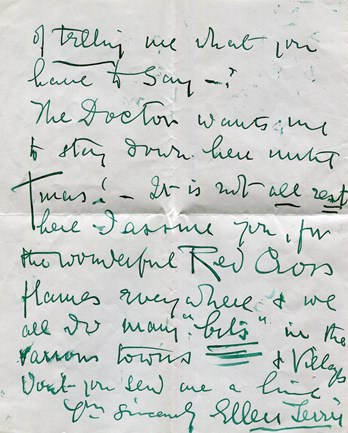 of telling me what you
have to say —?
The Doctor wants me
to stay down here until
Xmas! — It is not all rest
here I assure you, for
the wonderful Red Cross
flames everywhere & we
all do many "bits" in the
various towns & Villages
Won't you send me a line
Yrs Sincerely Ellen Terry